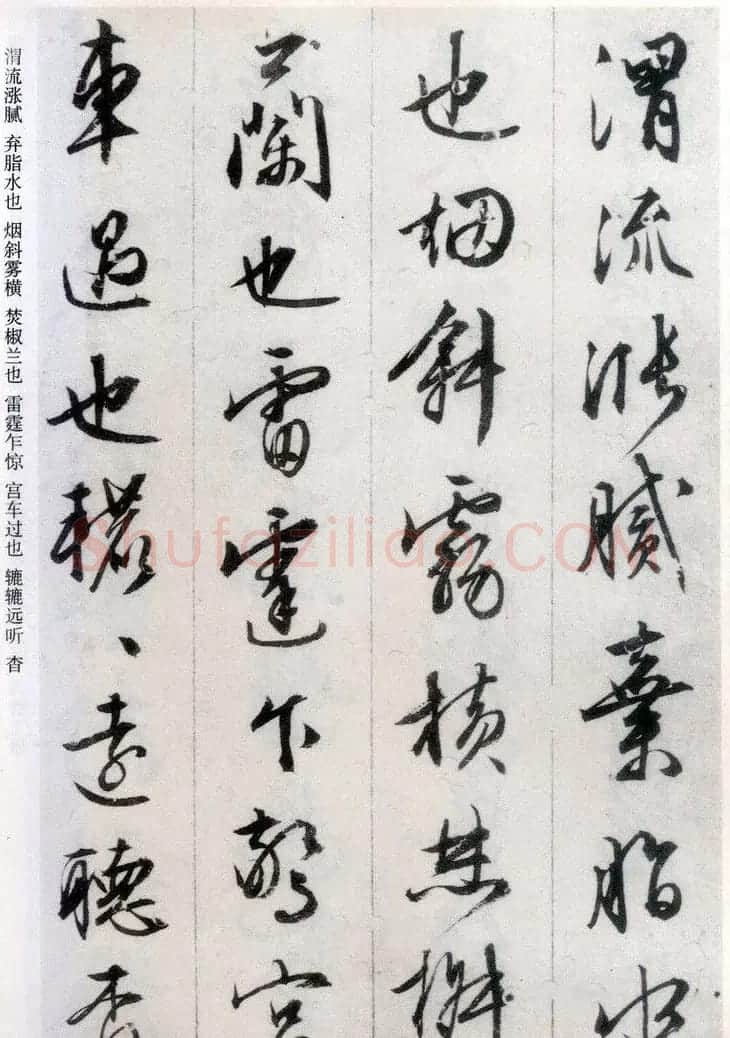 渭流漲膩棄脂水
也烟斜霧横焚椒
蘭也雷霆乍驚宮
車過也轆、遠聽杳
渭流涨腻 弃脂水也 烟斜雾横 焚椒兰也 雷霆乍惊 宫车过也 辘辘远听 杳
Shufaziliao.COM